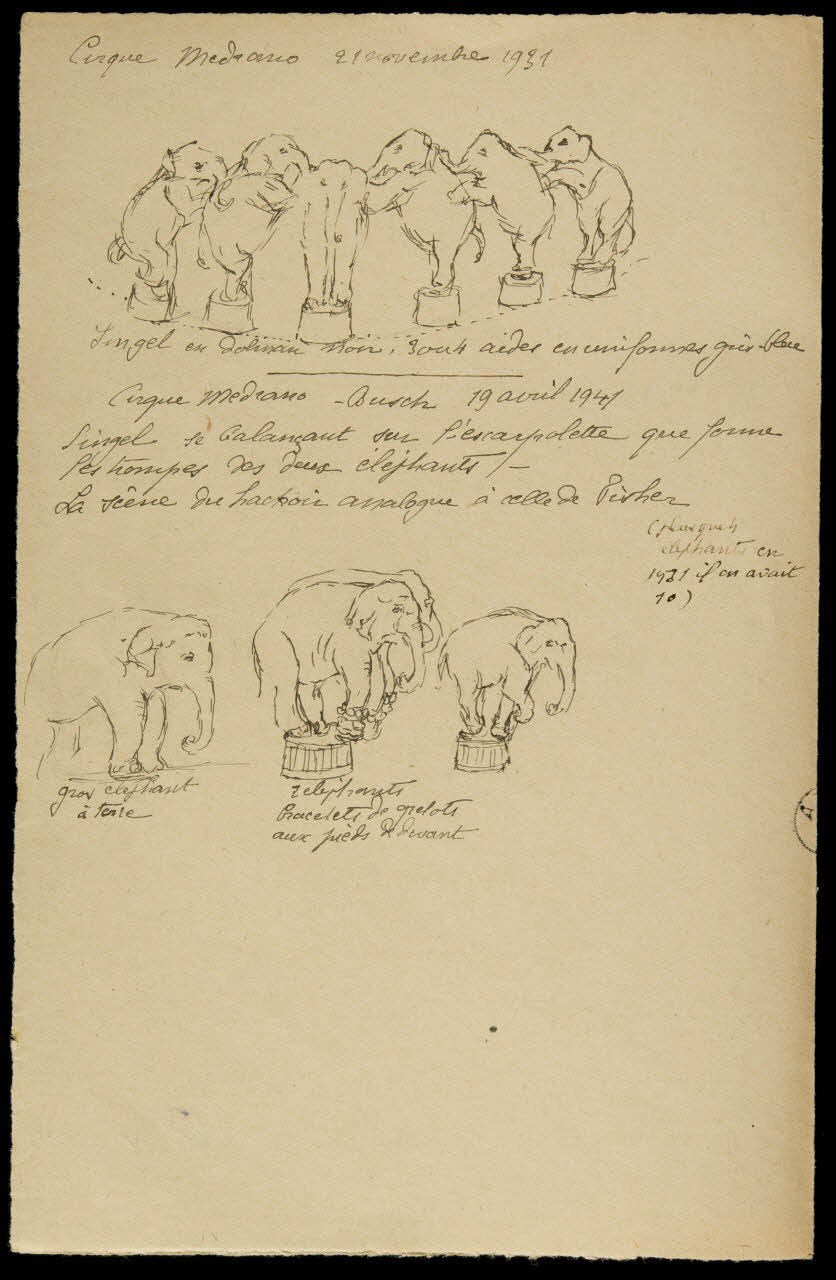 Cirque Medrano 21 novembre 1931
Singel en dolman noir, 3 ou 4 aides en uniformes gris-bleu
Cirque Medrano - Busch 19 avril 1941
Singel se balançant sur l'escarpolette que forme
les trompes des deux éléphants / -
La scène du hachoir analogue à celle de Fisher
( plus que 4
éléphants en
1931 il en avait
10 )
gros elephant
à terre
2 elephants
bracelets de grelots
aux pieds de devant
A